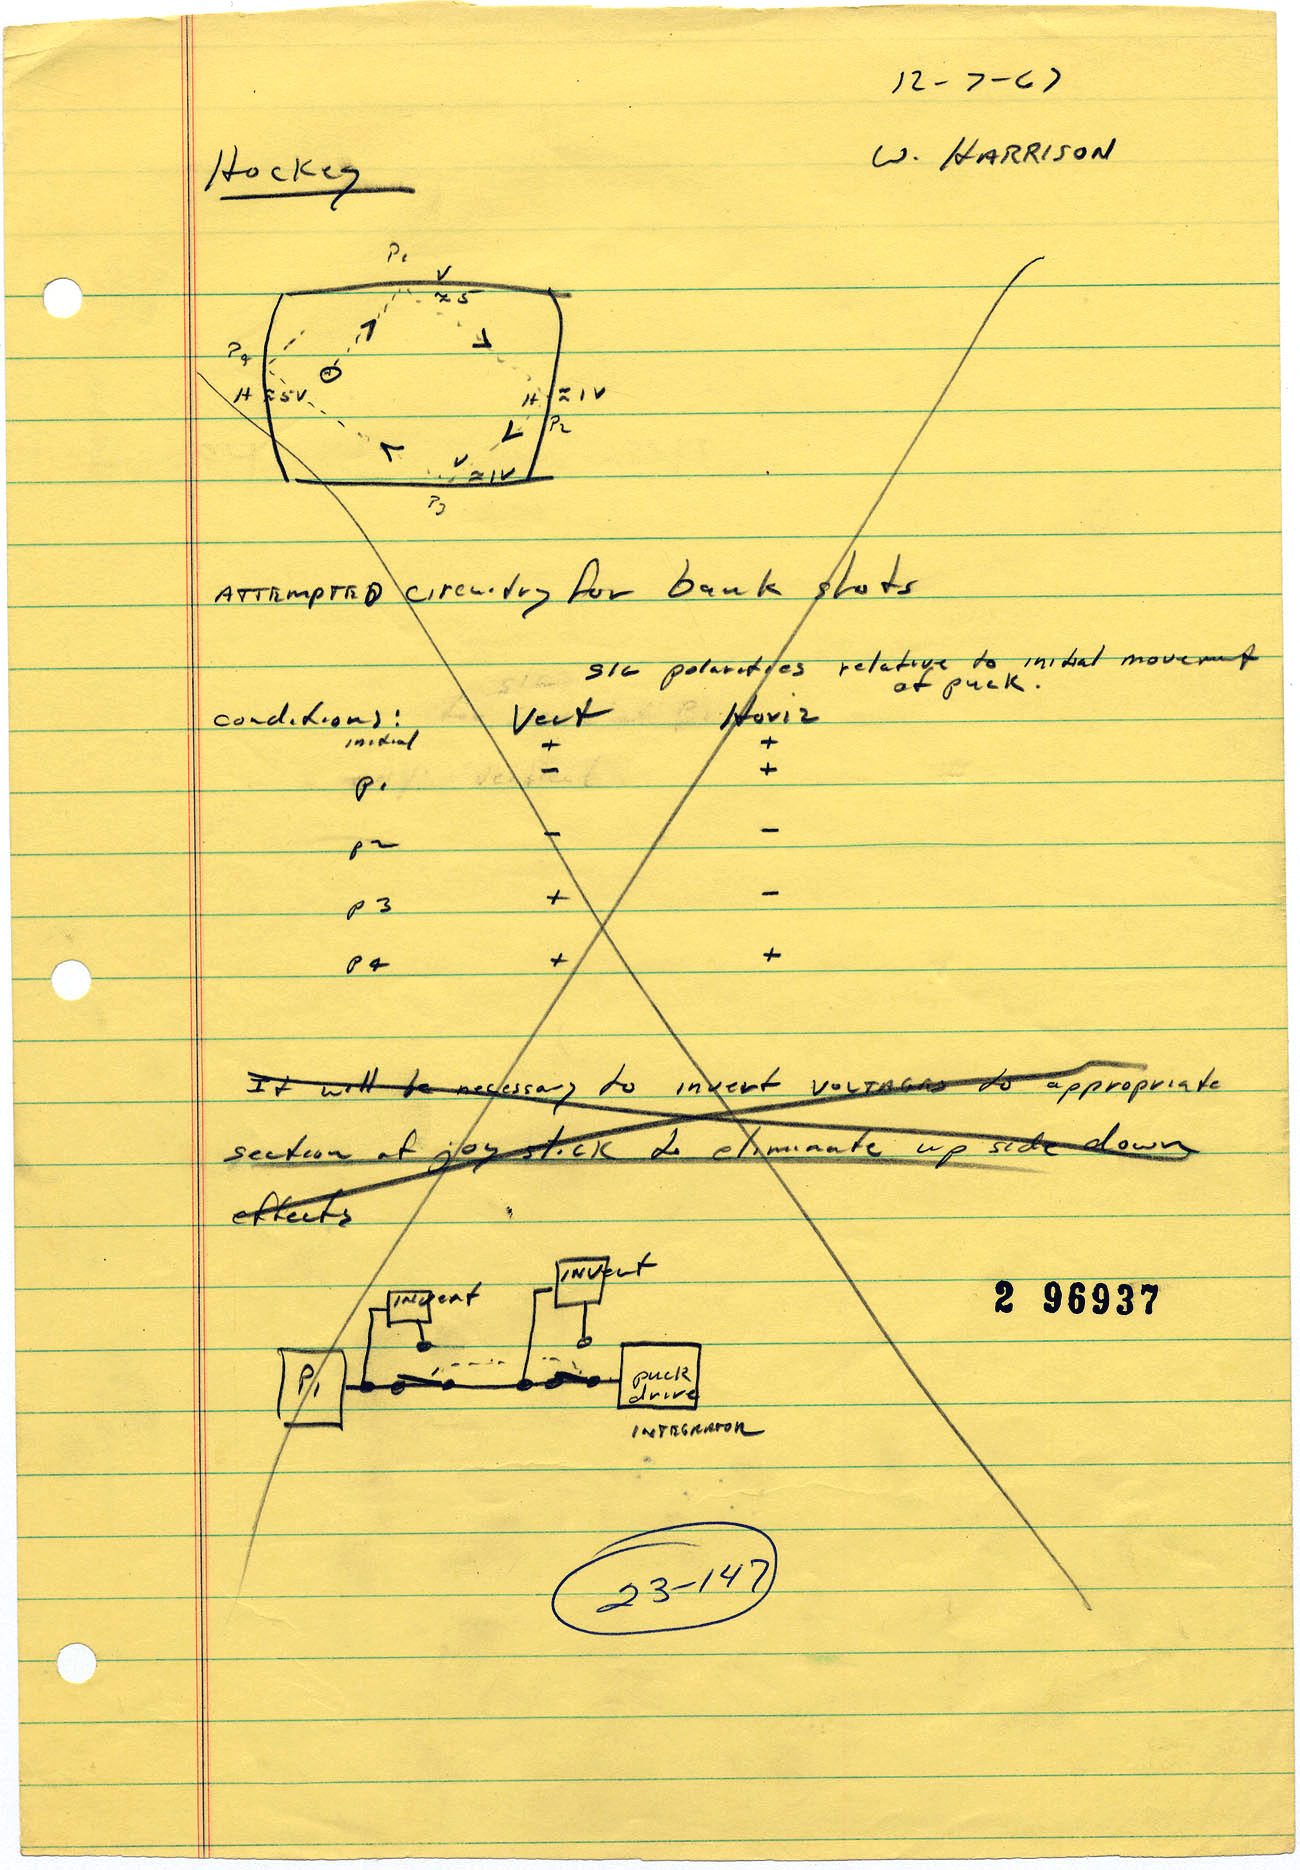 12-7-67
W. HARRISON
Hockey
P1
V
≈5
P4
H ≈5V
H ≈1V
P2
V
≈1V
P3
ATTEMPTED circuitry for bank shots
SIG polarities relative to initial movement
of puck.
conditions: Vert Horiz
initial + +
p1 - +
p2 - -
p3 + -
p4 + +
It will be necessary to invert VOLTAGES to appropriate
section of joy stick to eliminate up side down
effects
INVert
INVert
P1
puck
drive
INTEGRATOR
2 96937
23-147